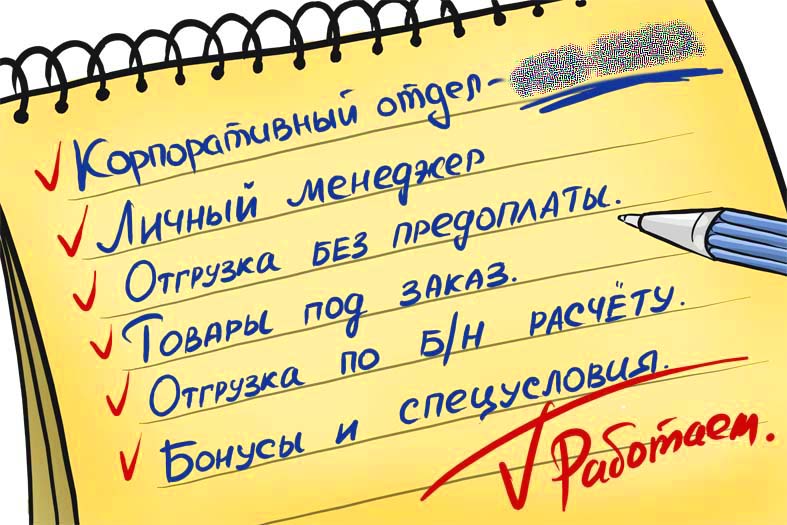 Корпоративный отдел-
Личный менеджер
Отгрузка без предоплаты.
Товары под заказ.
Отгрузка по б/н расчёту.
Бонусы и спецусловия.
Работаем.